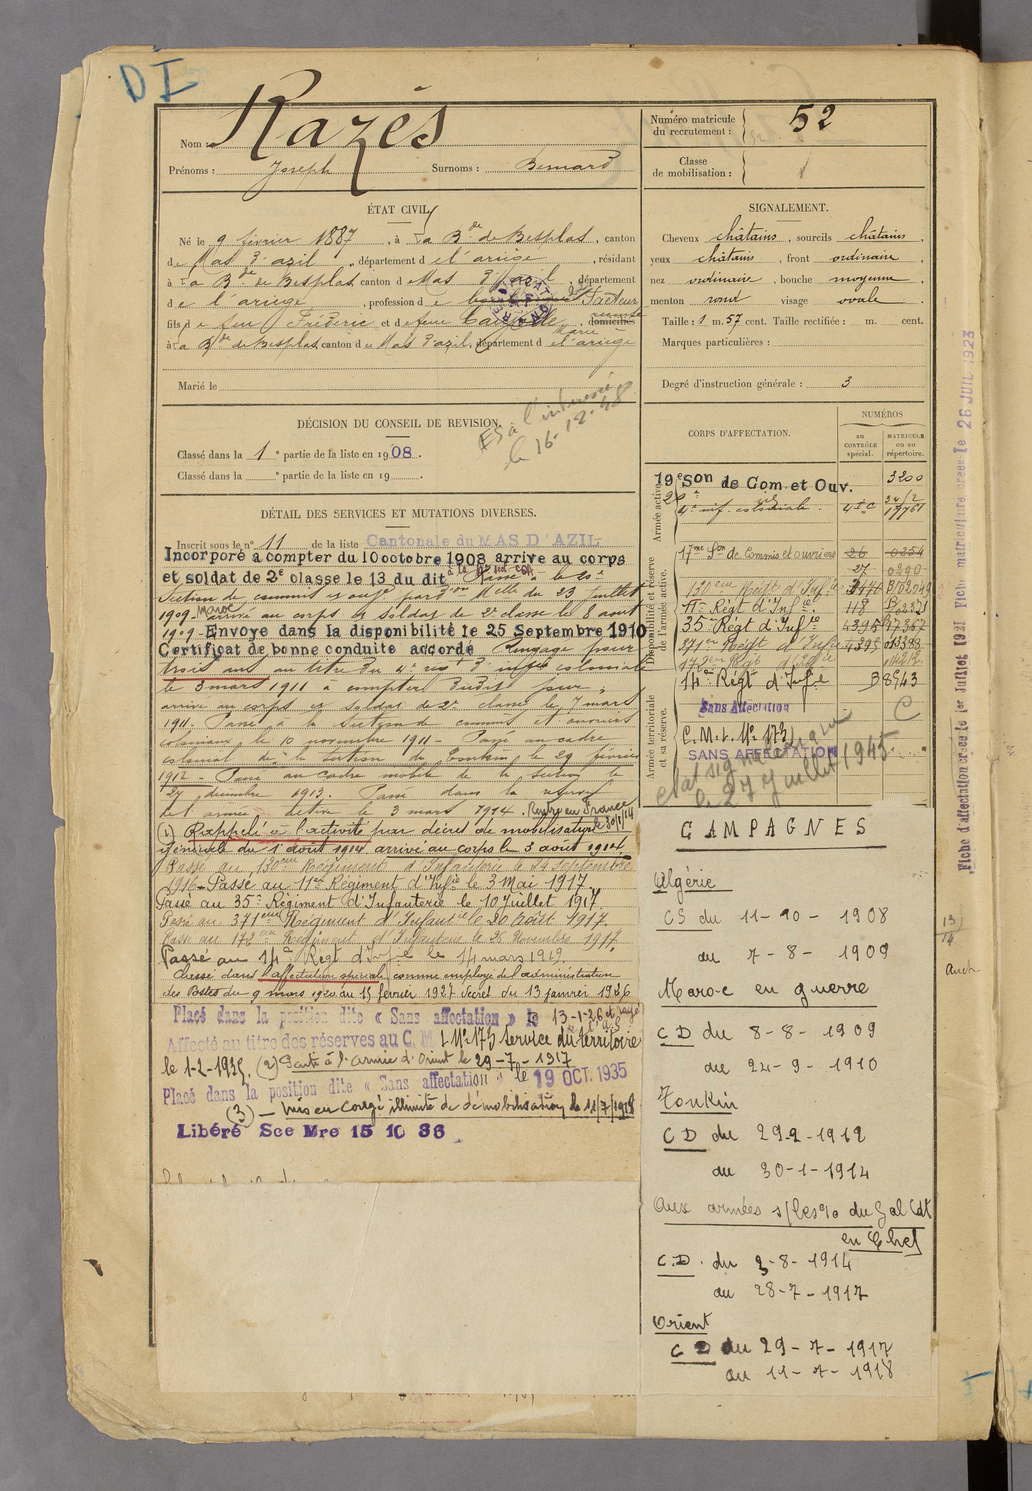 DI
Nom : Razés
Prénoms : Joseph Surnoms : Bernard
Numéro matricule du recrutement : 52
Classe de mobilisation :
ÉTAT CIVIL
Né le 9 février 1887, à La Bde de Besplas, canton
de Mas d'azil, département de l'ariège, résidant
à La Bde de Besplas, canton d Mas d'azil, département
d e l'ariège, profession d e Facteur
fils d e feu Fréderic et d e feue Marie, domiciliés
à La Bde de Besplas, canton d u Mas d'azil, département d e l'ariège
Marié le
SIGNALEMENT.
Cheveux châtains, sourcils châtains,
yeux châtains, front ordinaire,
nez ordinaire, bouche moyenne,
menton rond visage ovale
Taille : 1 m. 57 cent. Taille rectifiée : m. cent.
Marques particulières :
Degré d'instruction générale : 3
DÉCISION DU CONSEIL DE REVISION.
Classé dans la 1e partie de la liste en 1908.
Classé dans la e partie de la liste en 19
ES à l'intéressé
le 16-12-48
DÉTAIL DES SERVICES ET MUTATIONS DIVERSES.
Inscrit sous le n° 11 de la liste Cantonale du MAS D'AZIL
Incorporé à compter du 10 octobre 1908 arrive au corps
et soldat de 2e classe le 13 du dit Passé à la 20e
Section de commis et ouv. par on Mlle du 23 juillet
1909 - Maroc arrivé au corps et soldat de 2e classe le 8 aout
1909 - Envoyé dans la disponibilité le 25 Septembre 1910
Certificat de bonne conduite accordé Rengagé pour
trois ans au titre du 4e regt d'infie coloniale
le 3 mars 1911 à compter dudit jour,
arrivé au corps et soldat de 2e classe le 7 mars
1911. Passé à la Section de commis et ouvriers
coloniaux le 10 novembre 1911 - Passé au cadre
colonial de la section du Tonkin le 29 février
1912 - Passé au cadre mobile de la section le
27 decembre 1913. Passé dans la réserve
de l'armée active le 3 mars 1914. Rentré en France le 30/1/14
(1) Rappelé à l'activité par décret de mobilisation
générale du 1er août 1914 arrivé au corps le 3 août 1914.
Passé au 130eme Régiment d'Infanterie le 24 septembre
1916 - Passé au 11e Régiment d'Infie le 3 Mai 1917
Passé au 35e Régiment d'Infanterie le 10 Juillet 1917.
Passé au 371eme Régiment d'Infanterie le 20 Août 1917.
Passé au 172eme Régiment d'Infanterie le 26 Novembre 1917.
Passé au 14e Regt d'infie le 14 mars 1919.
Classé dans l'affectation spéciale comme employé de l'administration
des Postes du 9 mars 1920 au 15 février 1927 décret du 13 janvier 1926
Placé dans la position dite « Sans affectation » le 13-1-26
Affecté au titre des réserves au C.M.I. N° 173 service du territoire
le 1-2-1935. (2) Parti à l'armée d'Orient le 29-7-1917
Placé dans la position dite « Sans affectation » le 19 OCT. 1935
(3) - Mis en Congé illimité de démobilisation le 11/7/1918
Libéré Sce Mre 15 10 36
CORPS D'AFFECTATION.
NUMÉROS
au CONTRÔLE spécial.
MATRICULE ou au répertoire.
Armée active.
19e Son de Com. et Ouv. 3200
4e inf. coloniale.
Disponibilité et réserve de l'armée active.
17me Son de Commis et ouvriers 26 0254
27 0290
130eme Régt d'Infie
11e Régt d'Infie 118
35e Régt d'Infie 4395 17367
371eme Régt d'Infie 4395
172eme Régt d'Infie
14e Régt d'Infie B8943
Armée territoriale et sa réserve.
Sans Affectation
C.M.I. N° 173 C
SANS AFFECTATION
le 27 Juillet 1945
CAMPAGNES
Algérie
CS du 11-10-1908
au 7-8-1909
Maroc en guerre
CD du 8-8-1909
au 24-9-1910
Tonkin
CD du 29-2-1912
au 30-1-1914
Aux armées s/ les o/o du Gal Cdt
en Chef
C.D. du 3-8-1914
au 28-7-1917
Orient
CD du 29-7-1917
au 11-7-1918
13/14
Auch
Fiche d'affectation créée le 1er Juillet 1921 Fiche matriculaire créée le 26 JUIL 1923